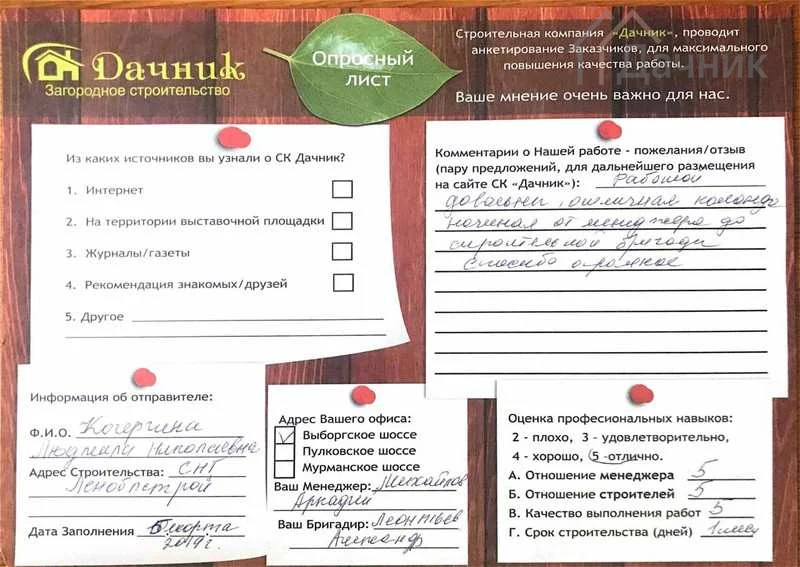 Дачник
Загородное строительство
Опросный
лист
Строительная компания «Дачник», проводит
анкетирование Заказчиков, для максимального
повышения качества работы.
Дачник
Ваше мнение очень важно для нас.
Из каких источников вы узнали о СК Дачник?
1. Интернет
2. На территории выставочной площадки
3. Журналы/газеты
4. Рекомендация знакомых/друзей
5. Другое
Комментарии о Нашей работе - пожелания/отзыв
(пару предложений, для дальнейшего размещения
на сайте СК «Дачник»): Работой
довольны, отличная команда
начиная от менеджера до
строительной бригады
Спасибо огромное
Информация об отправителе:
Ф.И.О. Кочергина
Людмила Николаевна
Адрес Строительства: СНТ
Ленобластрой
Дата Заполнения 5 марта
2019 г.
Адрес Вашего офиса:
Выборгское шоссе
Пулковское шоссе
Мурманское шоссе
Ваш Менеджер: Михайлов
Аркадий
Ваш Бригадир: Леонтьев
Александр
Оценка професиональных навыков:
2 - плохо, 3 - удовлетворительно,
4 - хорошо, 5 -отлично.
А. Отношение менеджера 5
Б. Отношение строителей 5
В. Качество выполнения работ 5
Г. Срок строительства (дней) 1 мес